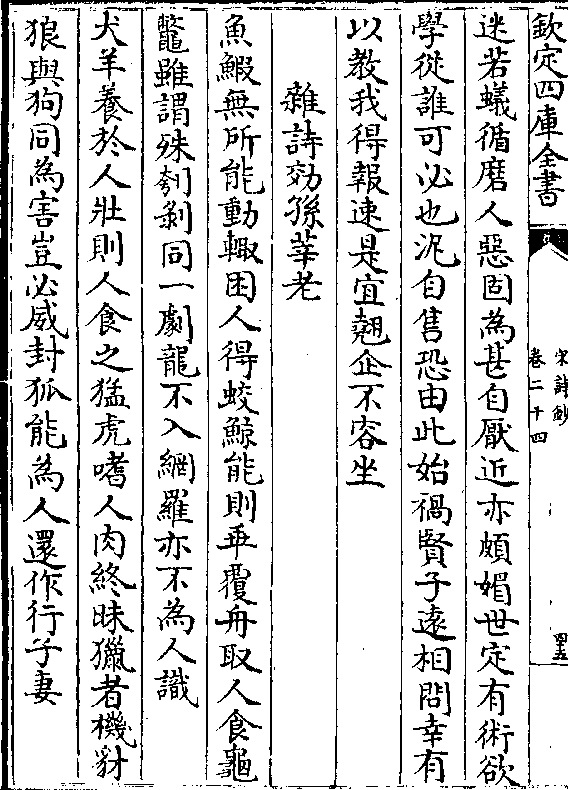 欽定四庫全書
宋詩鈔
卷二十四
四五
迷若蟻循磨人惡固為甚自厭近亦頗媚世定有術欲
學從誰可必也況自售恐由此始禍賢子遠相問幸有
以教我得報速是宜翹企不容坐
雜詩効孫莘老
魚鰕無所能動輙困人得蛟鯨能則再覆舟取人食龜
鼈雖謂殊刳剝同一劇龍不入網羅亦不為人識
犬羊養於人壯則人食之猛虎嗜人肉終昧獵者機豺
狼與狗同為害豈必威封狐能為人還作行子妻